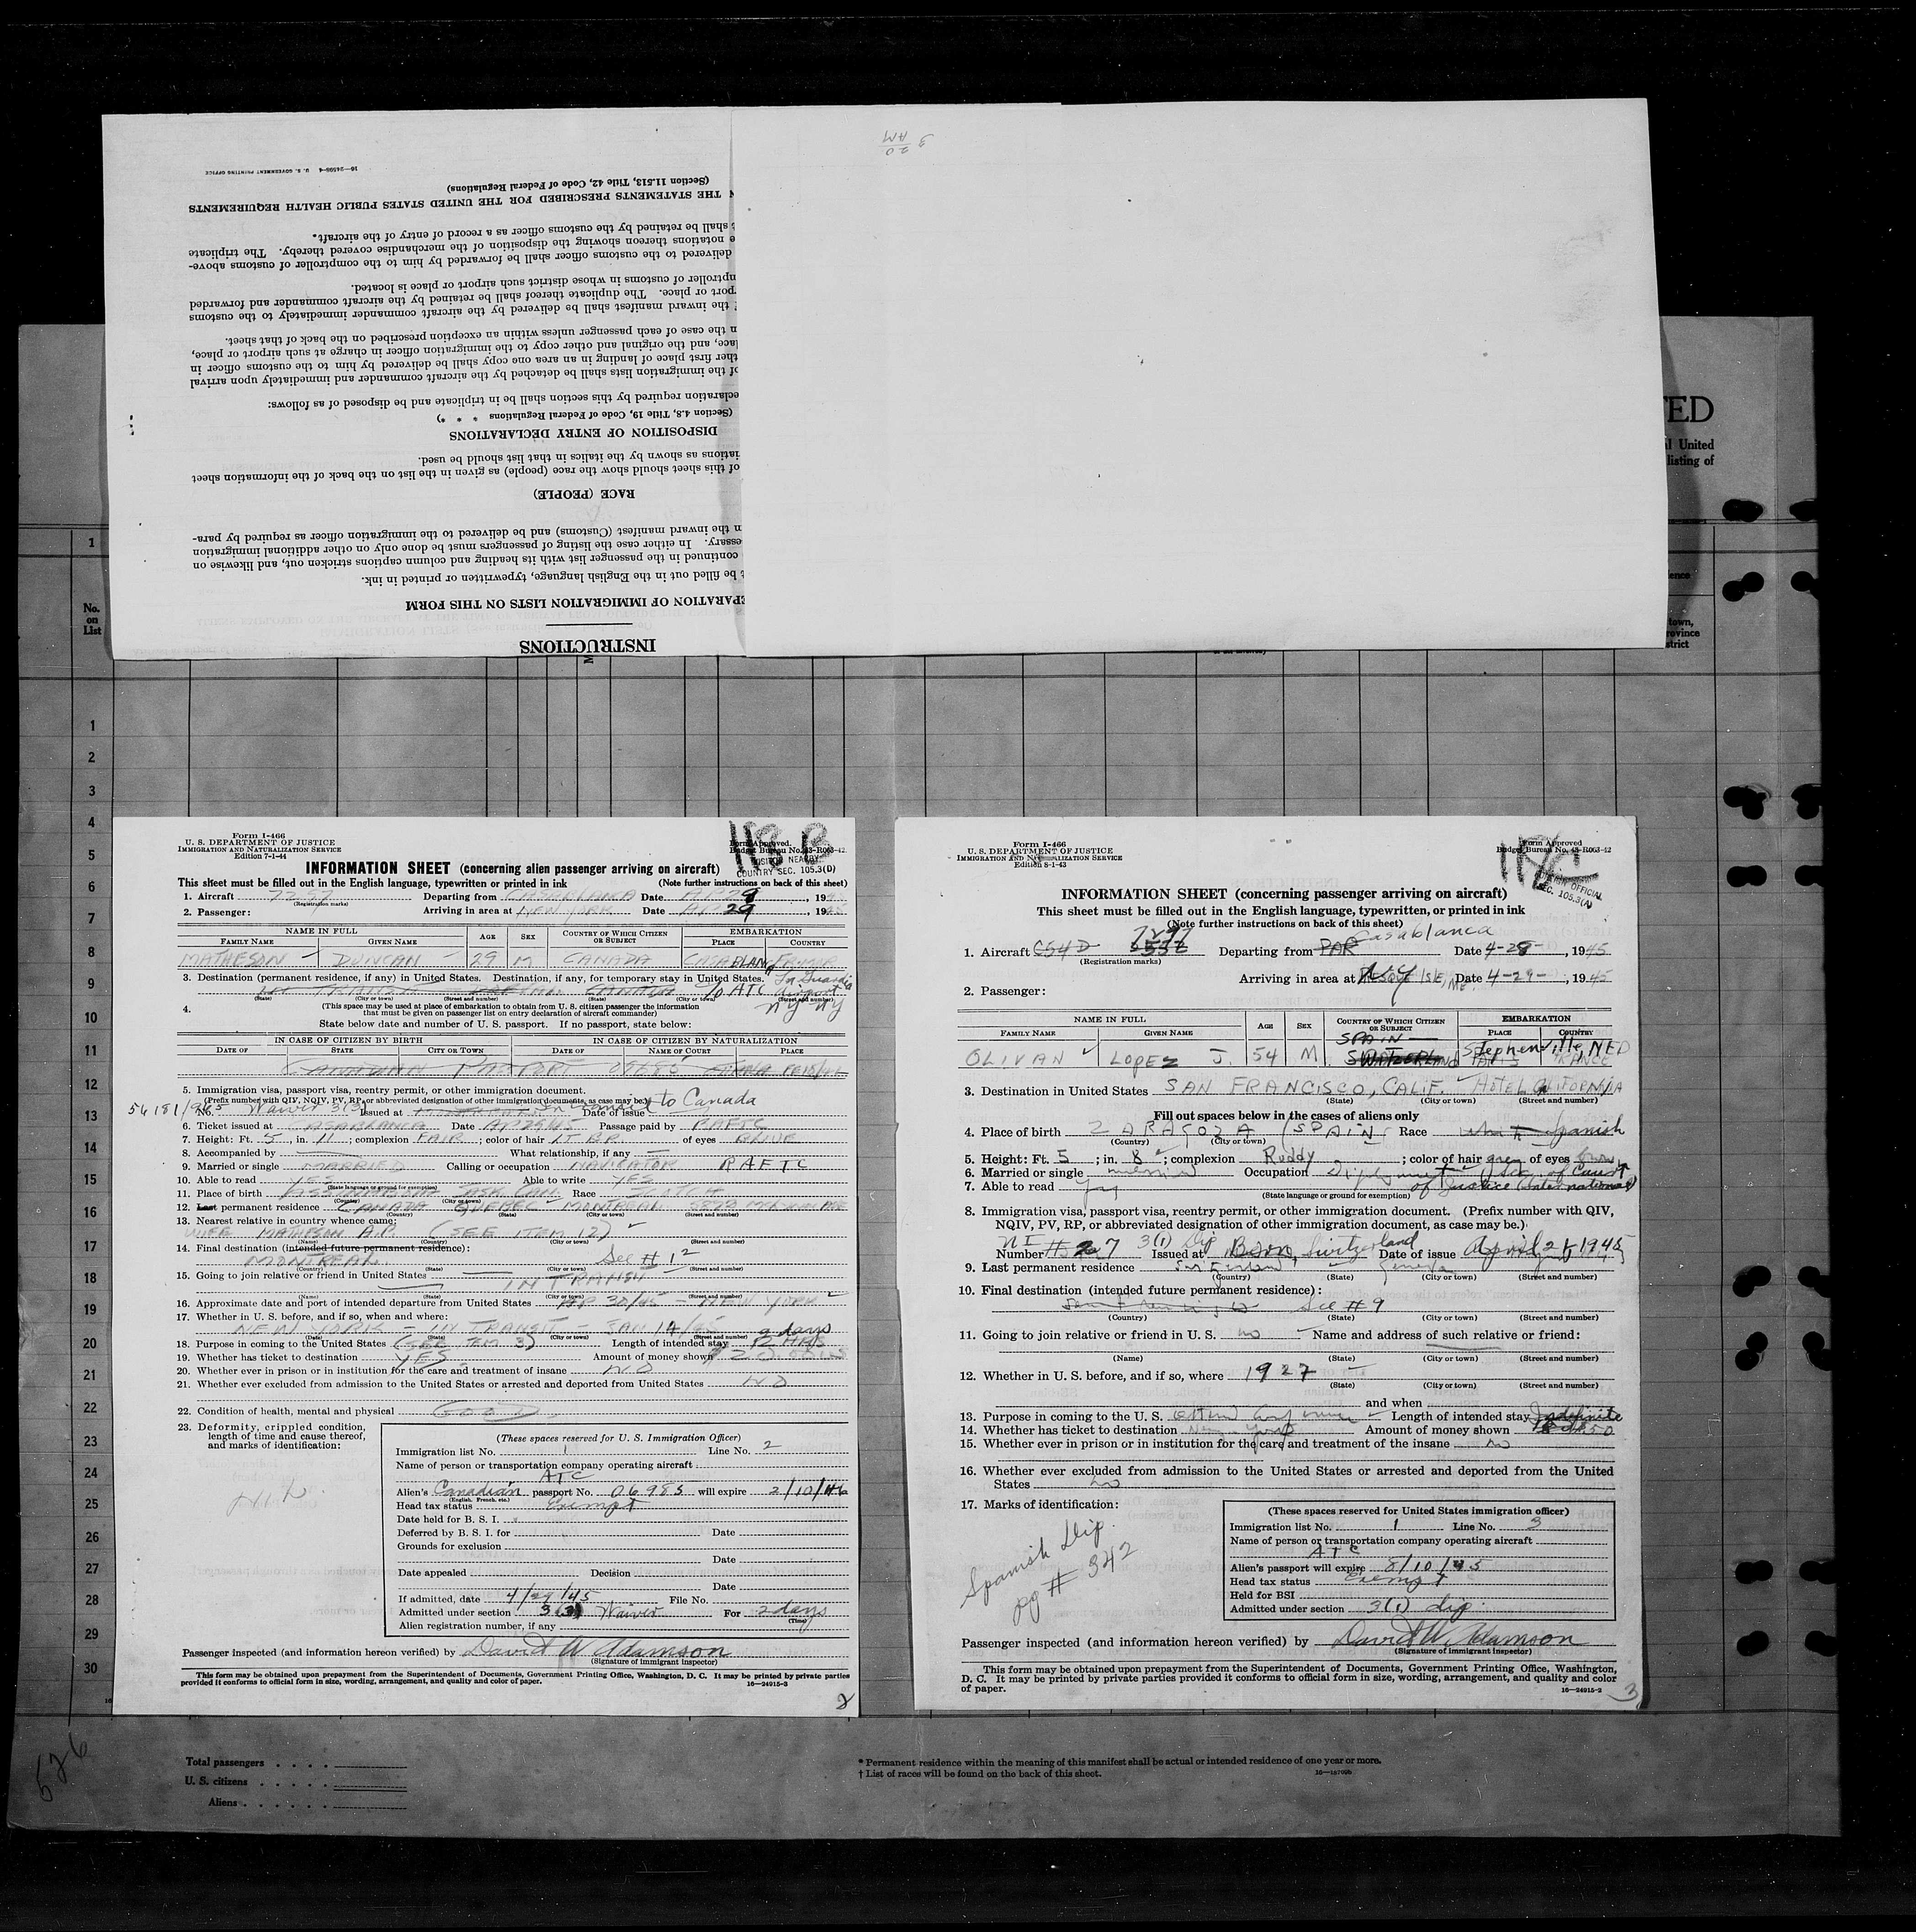 3 20
AM
INSTRUCTIONS
EPARATION OF IMMIGRATION LISTS ON THIS FORM
be filled out in the English language, typewritten or printed in ink.
continued in the passenger list with its heading and column captions stricken out, and likewise on
essary. In either case the listing of passengers must be done only on other additional immigration
n the inward manifest (Customs) and be delivered to the immigration officer as required by para-
RACE (PEOPLE)
of this sheet should show the race (people) as given in the list on the back of the information sheet
iations as shown by the italics in that list should be used.
DISPOSITION OF ENTRY DECLARATIONS
(Section 4.3, Title 19, Code of Federal Regulations * * *)
eclaration required by this section shall be in triplicate and be disposed of as follows:
of the immigration lists shall be detached by the aircraft commander and immediately upon arrival
ther first place of landing in an area one copy shall be delivered by him to the customs officer in
lace, and the original and other copy to the immigration officer in charge at such airport or place,
n the case of each passenger unless within an exception prescribed on the back of that sheet.
the inward manifest shall be delivered by the aircraft commander immediately to the customs
port or place. The duplicate thereof shall be retained by the aircraft commander and forwarded
mptroller of customs in whose district such airport or place is located.
delivered to the customs officer shall be forwarded by him to the comptroller of customs above-
e notations thereon showing the disposition of the merchandise covered thereby. The triplicate
shall be retained by the customs officer as a record of entry of the aircraft.*
THE STATEMENTS PRESCRIBED FOR THE UNITED STATES PUBLIC HEALTH REQUIREMENTS
(Section 11.513, Title 42, Code of Federal Regulations)
16—24598-4 U. S. GOVERNMENT PRINTING OFFICE
TED
United
listing of
ence
town,
rovince
strict
1
No.
on
List
1
2
3
4
5
6
7
8
9
10
11
12
13
14
15
16
17
18
19
20
21
22
23
24
25
26
27
28
29
30
Form I-466
U. S. DEPARTMENT OF JUSTICE
IMMIGRATION AND NATURALIZATION SERVICE
Edition 7-1-44
Form Approved.
Budget Bureau No. 43-R063-42.
VISITOR NEARBY
COUNTRY SEC. 105.3(D)
INFORMATION SHEET (concerning alien passenger arriving on aircraft)
This sheet must be filled out in the English language, typewritten or printed in ink (Note further instructions on back of this sheet)
1. Aircraft 7297 Departing from CASABLANCA Date , 19
(Registration marks)
2. Passenger: Arriving in area at NEW YORK Date AP 29 , 1945
NAME IN FULL AGE SEX COUNTRY OF WHICH CITIZEN OR SUBJECT EMBARKATION
FAMILY NAME GIVEN NAME PLACE COUNTRY
MATHESON DUNCAN 29 M CANADA CASABLANCA FR. MOR
3. Destination (permanent residence, if any) in United States. Destination, if any, for temporary stay in United States. La Guardia
IN TRANSIT CANADA % ATC airport
(State) (City or town) (Street and number) (State) (City or town) (Street and number)
4. (This space may be used at place of embarkation to obtain from U. S. citizen passenger the information NY NY
that must be given on passenger list on entry declaration of aircraft commander)
State below date and number of U. S. passport. If no passport, state below:
IN CASE OF CITIZEN BY BIRTH IN CASE OF CITIZEN BY NATURALIZATION
DATE OF STATE CITY OR TOWN DATE OF NAME OF COURT PLACE
CANADIAN PASSPORT
5. Immigration visa, passport visa, reentry permit, or other immigration document.
(Prefix number with QIV, NQIV, PV, RP, or abbreviated designation of other immigration documents, as case may be.)
56181/965 No. Waiver 3(3) Issued at In transit to Canada Date of issue
6. Ticket issued at CASABLANCA Date AP 29/45 Passage paid by RAFTC
7. Height: Ft. 5, in. 11; complexion FAIR; color of hair LT BR of eyes BLUE
8. Accompanied by What relationship, if any
9. Married or single MARRIED Calling or occupation NAVIGATOR RAFTC
10. Able to read YES Able to write YES
(State language or ground for exemption)
11. Place of birth SASK CAN. Race SCOTCH
(Country) (City or town)
12. Last permanent residence CANADA QUEBEC MONTREAL
(Country) (State) (City or town) (Street and number)
13. Nearest relative in country whence came:
WIFE MATHESON A.P. (SEE ITEM 12)
(Name) (Country) (City or town) (Street and number)
14. Final destination (intended future permanent residence):
MONTREAL See # 12
(Country) (State) (City or town) (Street and number)
15. Going to join relative or friend in United States IN TRANSIT
(Name) (State) (City or town) (Street and number)
16. Approximate date and port of intended departure from United States AP 30/45 - NEW YORK
17. Whether in U.S. before, and if so, when and where:
NEW YORK - IN TRANSIT - JAN 14/45
(Date) (State) (City or town) (Street and number)
2 days
18. Purpose in coming to the United States (SEE ITEM 3) Length of intended stay 12 HRS
19. Whether has ticket to destination YES Amount of money shown
20. Whether ever in prison or in institution for the care and treatment of insane NO
21. Whether ever excluded from admission to the United States or arrested and deported from United States NO
22. Condition of health, mental and physical GOOD
23. Deformity, crippled condition,
length of time and cause thereof,
and marks of identification:
NIL
(These spaces reserved for U. S. Immigration Officer)
Immigration list No. 1 Line No. 2
Name of person or transportation company operating aircraft
ATC
Alien's Canadian passport No. 06985 will expire 2/10/46
(English, French, etc.)
Head tax status Exempt
Date held for B. S. I.
Deferred by B. S. I. for Date
Grounds for exclusion
Date
Date appealed Decision
Date
If admitted, date 4/29/45 File No.
Admitted under section 3(3) Waiver For 2 days
(Time)
Alien registration number, if any
Passenger inspected (and information hereon verified) by David W Adamson
(Signature of immigrant inspector)
This form may be obtained upon prepayment from the Superintendent of Documents, Government Printing Office, Washington, D. C. It may be printed by private parties
provided it conforms to official form in size, wording, arrangement, and quality and color of paper. 16—24915-3
2
Form I-466
U. S. DEPARTMENT OF JUSTICE
IMMIGRATION AND NATURALIZATION SERVICE
Edition 8-1-43
Form Approved
Budget Bureau No. 43-R063-42
FOREIGN OFFICIAL
SEC. 105.3(A)
INFORMATION SHEET (concerning passenger arriving on aircraft)
This sheet must be filled out in the English language, typewritten, or printed in ink
(Note further instructions on back of this sheet)
7297 Casablanca
1. Aircraft C54D Departing from PAR Date 4-28-, 1945
(Registration marks)
Arriving in area at NY PRESQUE ISLE, ME. Date 4-29-, 1945
2. Passenger:
NAME IN FULL AGE SEX COUNTRY OF WHICH CITIZEN OR SUBJECT EMBARKATION
FAMILY NAME GIVEN NAME PLACE COUNTRY
SPAIN Stephenville, NFD
OLIVAN LOPEZ J. 54 M SWITZERLAND PARIS FRANCE
3. Destination in United States SAN FRANCISCO, CALIF. HOTEL CALIFORNIA
(State) (City or town) (Street and number)
Fill out spaces below in the cases of aliens only
4. Place of birth ZARAGOZA (SPAIN) Race white Spanish
(Country) (City or town)
5. Height: Ft. 5; in. 8; complexion Ruddy; color of hair grey of eyes brown
6. Married or single married Occupation Diplomat of Court
of Justice (International)
7. Able to read yes
(State language or ground for exemption)
8. Immigration visa, passport visa, reentry permit, or other immigration document. (Prefix number with QIV,
NQIV, PV, RP, or abbreviated designation of other immigration document, as case may be.)
NI 3(1) Dip
Number # 267 Issued at Bern, Switzerland Date of issue April 21 1945
9. Last permanent residence Switzerland Geneva
(Country) (State) (City or town) (Street and number)
10. Final destination (intended future permanent residence):
See # 9
(Country) (State) (City or town) (Street and number)
11. Going to join relative or friend in U. S. no Name and address of such relative or friend:
(Name) (State) (City or town) (Street and number)
12. Whether in U. S. before, and if so, where 1927
(State) (City or town) (Street and number)
and when
13. Purpose in coming to the U. S. Length of intended stay Indefinite
14. Whether has ticket to destination New York Amount of money shown
15. Whether ever in prison or in institution for the care and treatment of the insane no
16. Whether ever excluded from admission to the United States or arrested and deported from the United
States no
17. Marks of identification:
Spanish Dip.
pp # 342
(These spaces reserved for United States immigration officer)
Immigration list No. 1 Line No. 3
Name of person or transportation company operating aircraft
ATC
Alien's passport will expire 8/10/45
Head tax status Exempt
Held for BSI
Admitted under section 3(1) dip.
Passenger inspected (and information hereon verified) by David W. Adamson
(Signature of immigrant inspector)
This form may be obtained upon prepayment from the Superintendent of Documents, Government Printing Office, Washington,
D. C. It may be printed by private parties provided it conforms to official form in size, wording, arrangement, and quality and color
of paper. 16—24915-2
3
526
Total passengers . . . .
U. S. citizens . . . . .
Aliens . . . . . .
* Permanent residence within the meaning of this manifest shall be actual or intended residence of one year or more.
† List of races will be found on the back of this sheet.